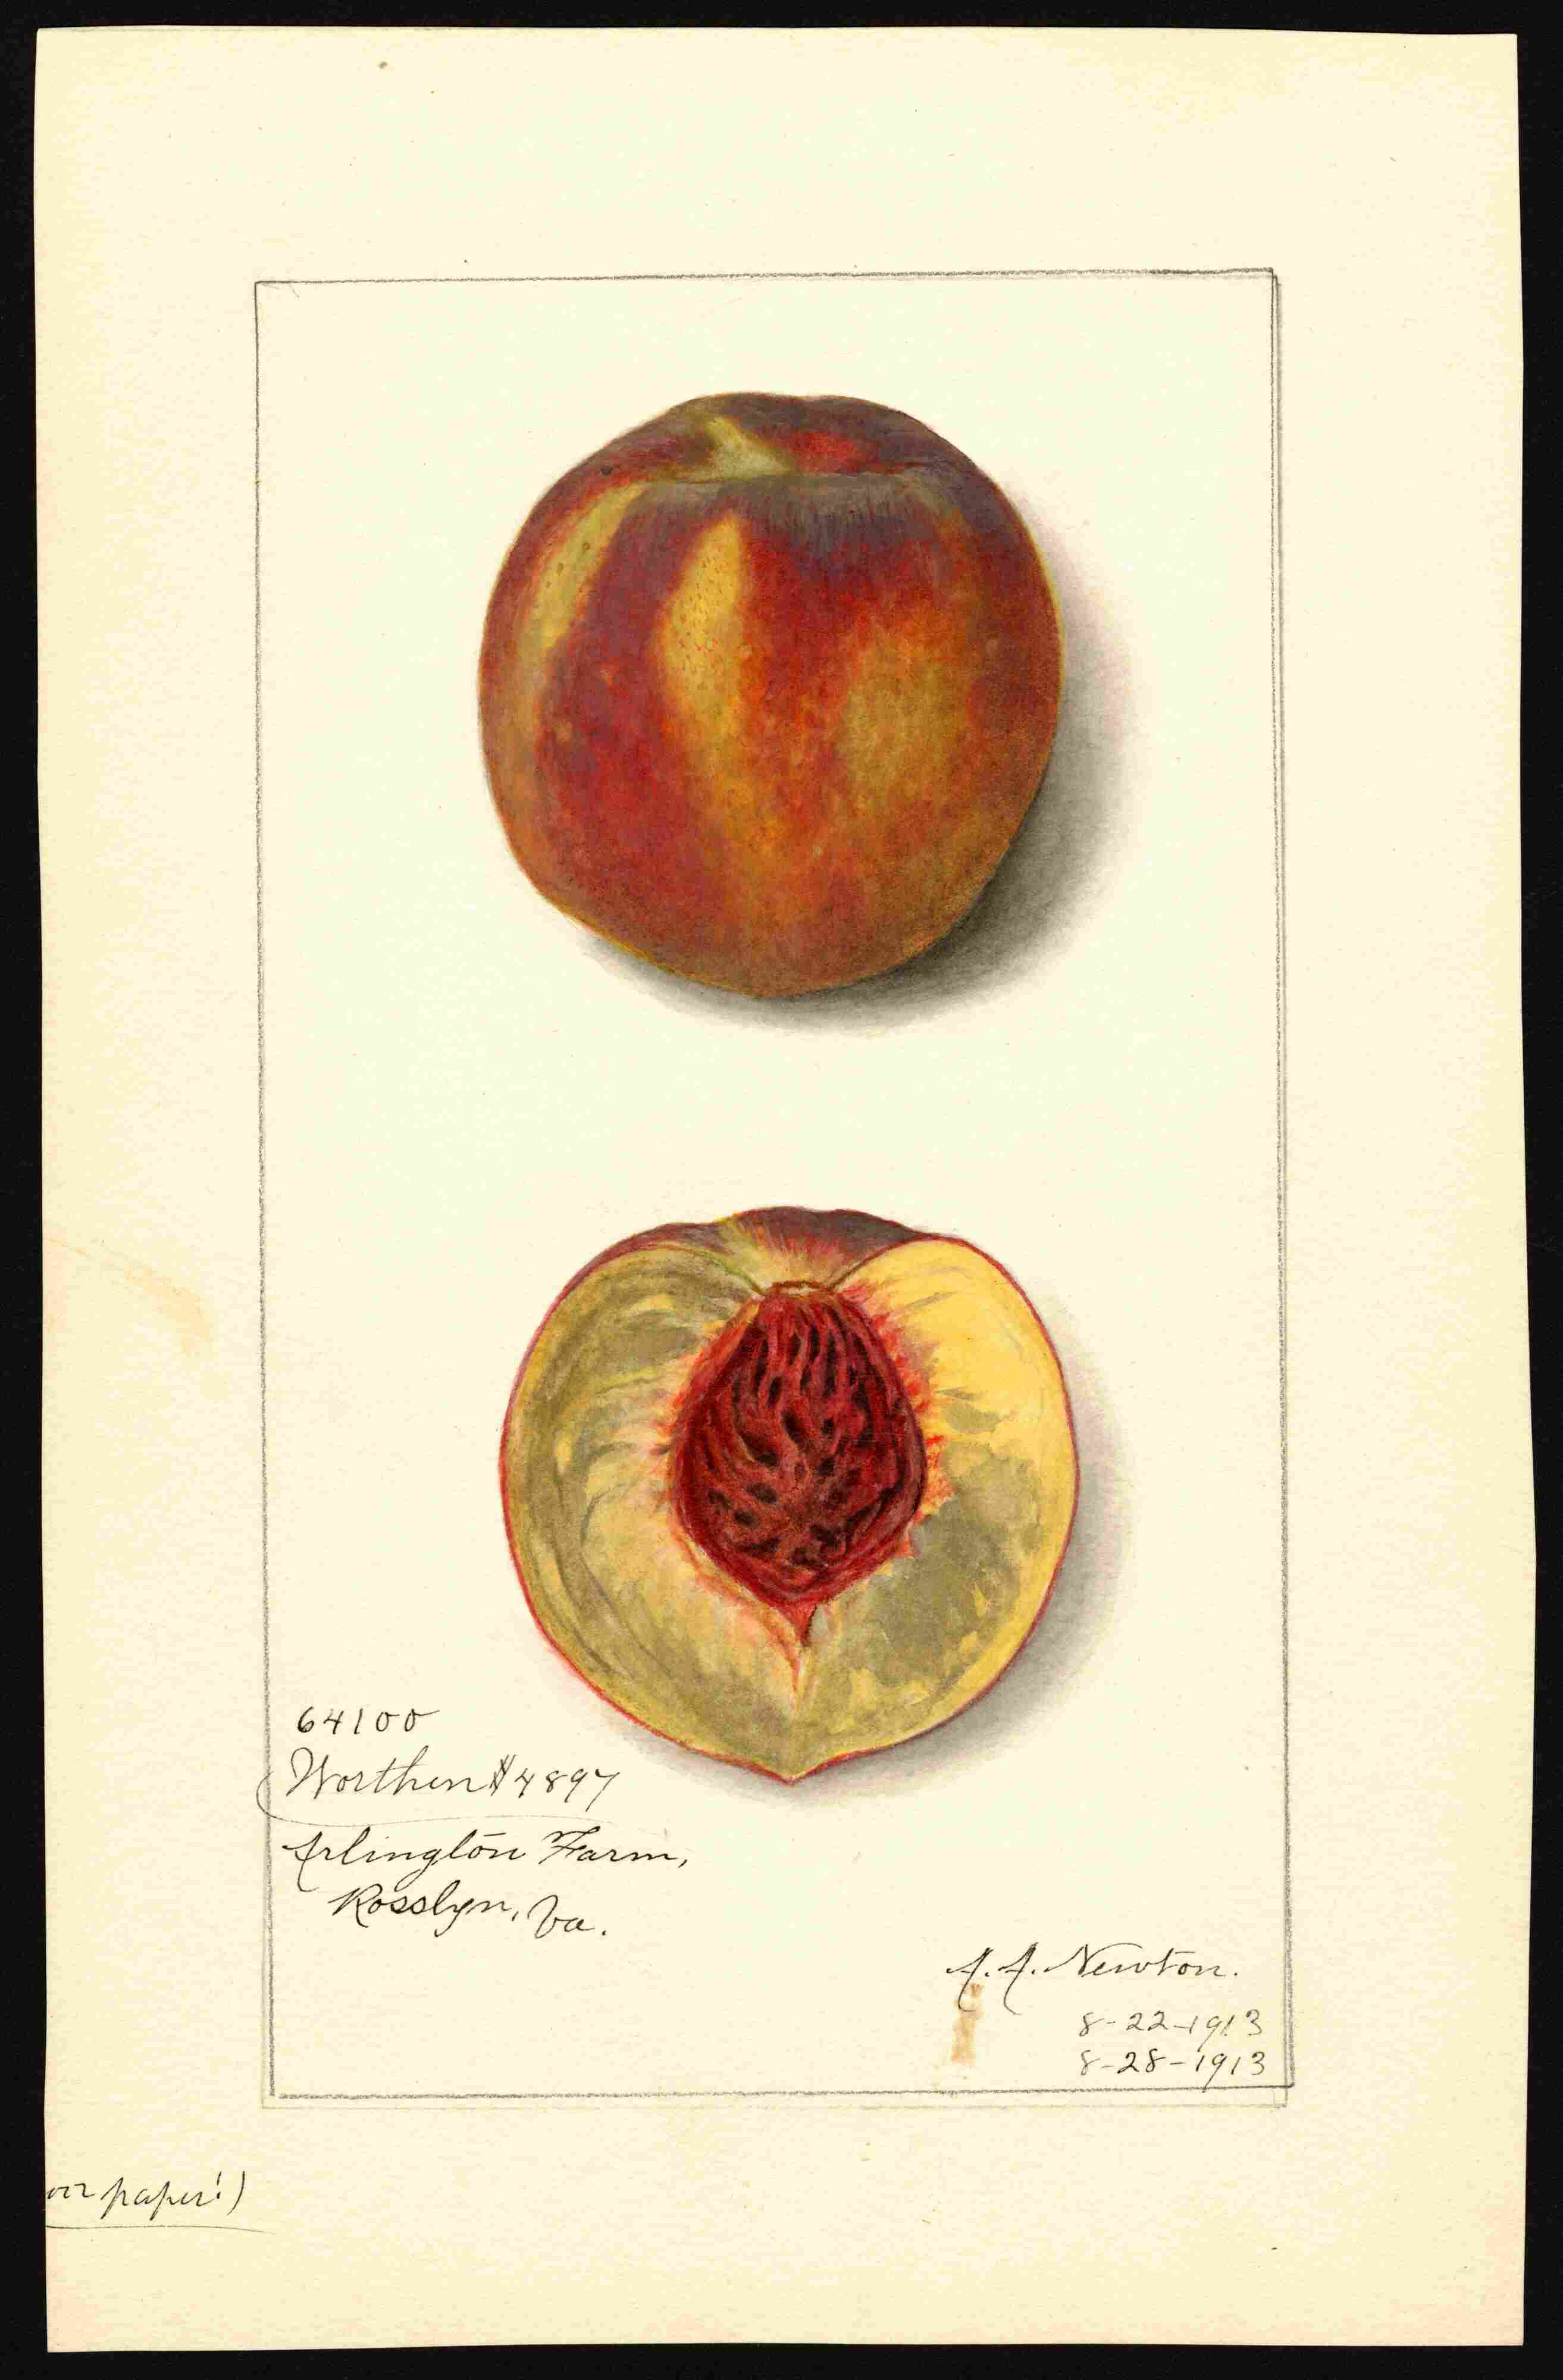 64100
Worthen #4897
Arlington Farm,
Rosslyn, Va.
A. A. Newton.
8-22-1913
8-28-1913
paper!)